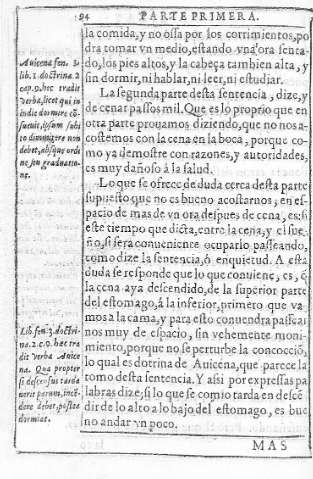 94 PARTE PRIMERA.
la comida, y no ossa por los corrimientos, po
dra tomar vn medio, estando vna ora senta-
do, los pies altos, y la cabeça tambien alta, y
sin dormir, ni hablar, ni leer, ni estudiar.
La segunda parte desta sentencia, dize, y
de cenar passos mil. Que es lo proprio que en
otra parte prouamos diziendo, que no nos a-
costemos con la cena en la boca, porque co-
mo ya demostre con razones, y autoridades,
es muy dañoso à la salud.
Lo que se ofrece de duda cerca desta parte
supuesto que no es bueno acostarnos, en es-
pacio de mas de vn ora despues de cena, es: si
este tiempo que dicta, entre la cena, y el sue-
ño, si sera conueniente ocuparlo passeando,
como dize la sentencia, ó enquietud. A esta
duda se responde que lo que conuiene, es, q̃
la cena aya descendido, de la superior parte
del estomago, à la inferior, primero que va-
mos a la cama, y para esto conuendra passear
nos muy de espacio, sin vehemente moui-
miento, porque no se perturbe la concocció,
lo qual es dotrina de Auicena, que parece la
tomo desta sentencia. Y assi por expressas pa
labras dize; si lo que se comio tarda en descé
dir de lo alto a lo bajo del estomago, es bue
no andar vn poco.
MAS
Auicena fen. 3.
lib. 1. doctrina. 2
cap. 9. hec tradit
verba, licet qui in
indie dormire cõ-
sueuit, ipsum subi
to dimittere non
debet, absque ordi
ne seu graduatio-
ne.
Lib. fen. 3. doctri-
na. 2. c. 9. hec tra
dit verba Auice
na. Qua propter
si descensus tarda
uerit parum, incë-
dere debet, postea
dormiat.